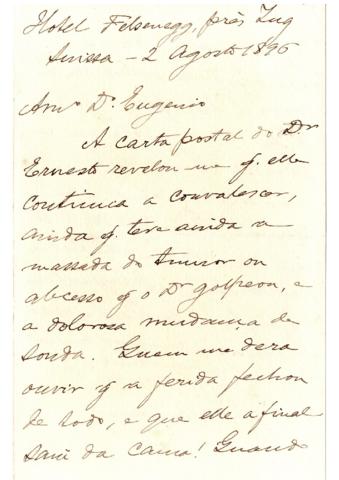 Hotel Felsenegg, près Zug
Suissa - 2 Agosto 1896
Amo Dr. Eugenio
A carta postal do Dr
Ernesto revelou-me q. elle
continua a convalescer,
ainda q. teve ainda a
massada do tumor ou
abcesso q o Dr golpeou, e
a dolorosa mudança da
sonda. Quem me dera
ouvir q a ferida fechou
de todo, e que elle afinal
saiu da cama! Quando